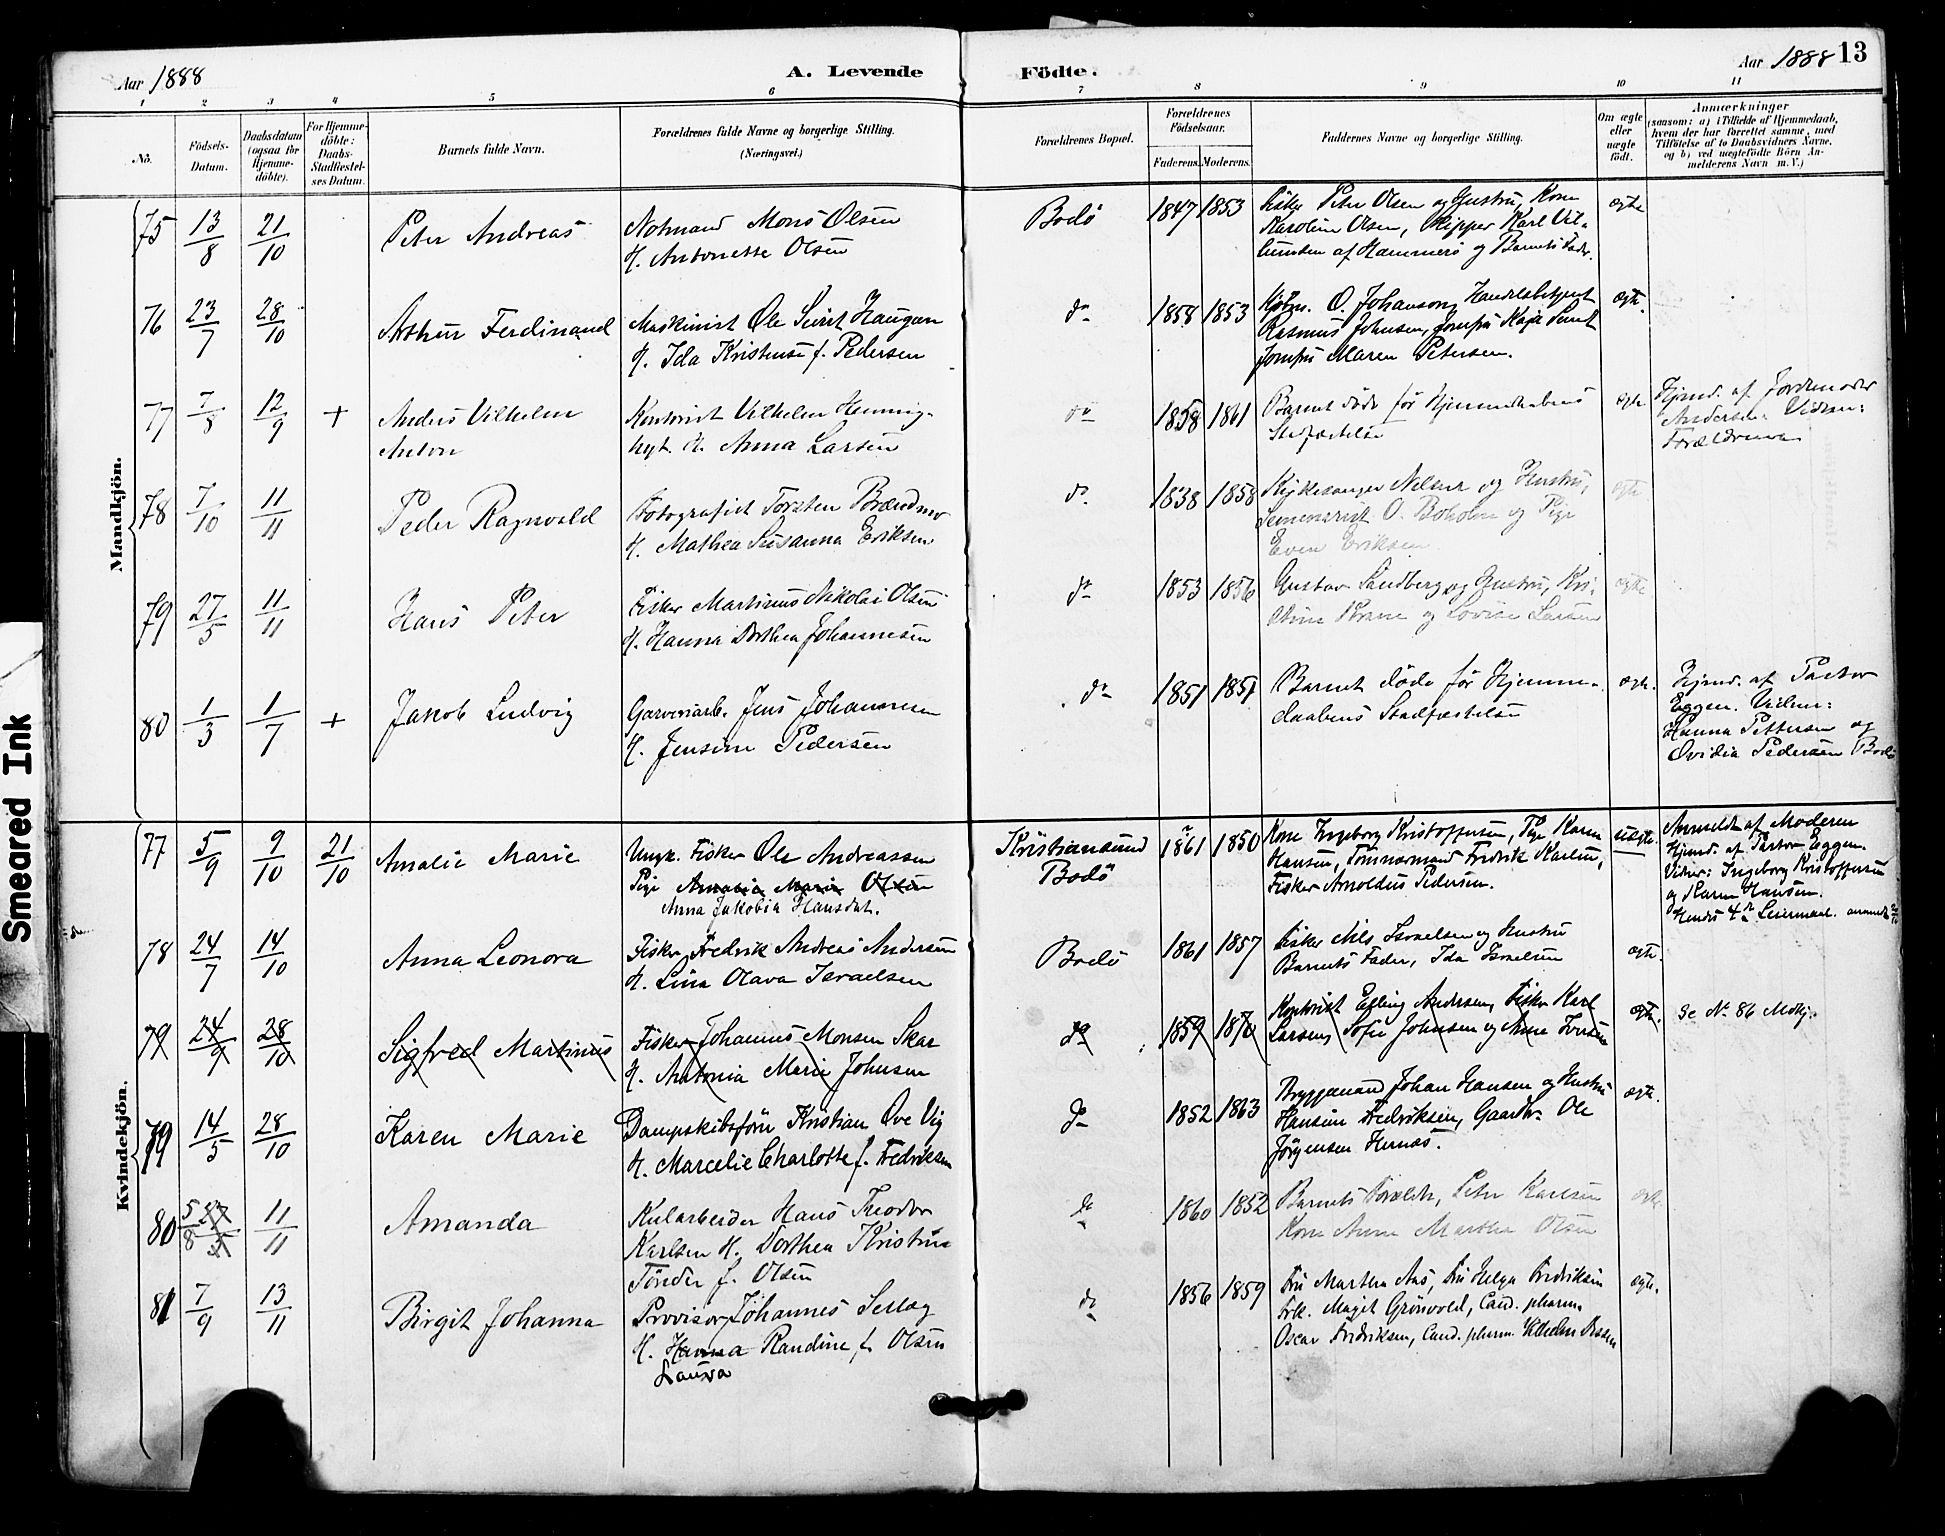 Aar 1888
A. Levende
Födte.
Aar 1888 13
1 2 3 4 5 6 7 8 9 10 11
No.
Födsels-Datum.
Daabsdatum (ogsaa for Hjemmedöbte).
For Hjemmedöbte: Daabs-Stadfæstelses Datum.
Barnets fulde Navn.
Forældrenes fulde Navne og borgerlige Stilling.
(Næringsvei.)
Forældrenes Bopæl.
Forældrenes Födselsaar.
Faderens. Moderens.
Faddernes Navne og borgerlige Stilling.
Om ægte eller uægte födt.
Anmærkninger
(saasom: a) i Tilfælde af Hjemmedaab,
hvem der har forrettet samme, med
Tilföielse af to Daabsvidners Navne,
og b) ved uægtefödte Börn Anmelderens Navn m. V.)
Mandkjön.
75 13/8 21/10 Peter Andreas
Notmand Mons Olsen
H. Antonette Olsen
Bodö 1847 1853
Fisker Peter Olsen og Hustru, Kone
Karoline Olsen, Skipper Karl
af Hammerö og Barnets Fader.
ægte
76 23/7 28/10 Arthur Ferdinand
Maskinist Ole Sivert Haugan
H. Ida Kristense f. Pedersen
do 1858 1853
Kjøbm. O. Johanson, Handelsbetjent
Rasmus Johnsen, Jomfru Kaja
Jomfru Maren Petersen.
ægte.
77 7/8 12/9 + Anders Vilhelm
Anton
Kontorist Vilhelm Henning-
H. Anna Larsen
do 1858 1861
Barnet döde för Hjemmedaabens
Stadfæstelse
ægte
Hjemd. af Jordemoder
Andersen Vidner:
Forældrene
78 7/10 11/11 Peder Ragnvald
Fotografist Torsten Brændmo
H. Mathea Susanna Eriksen.
do 1838 1858
Kirkesanger Nelsen og Hustru,
Seminarist O. Boholm og Pige
Even Eriksen
ægte
79 27/5 11/11 Hans Peter
Fisker Martinus Nikolai Olsen
H. Hanna Dorthea Johannesen
do 1853 1856
Gustav Sandberg og Hustru, Kri-
og Lovise Larsen
ægte
80 1/3 1/7 + Jakob Ludvig
Garveriarb. Jens Johannesen
H. Jensine Pedersen
do 1851 1851
Barnet döde för Hjemme-
daabens Stadfæstelse
ægte.
Hjemd. af Pastor
Eggen. Vidner:
Hanna Pettersen og
Ovidia Pedersen Bodö
Kvindekjön.
77 5/9 9/10 21/10 Amalie Marie
Ungk. Fisker Ole Andreassen
Pige Amalia Marie Olsen
Anna Jakobia Hansdat.
Kristiansund
Bodö
1861 1850
Kone Ingeborg Kristoffersen, Pige Karen
Hansen, Tömmermand Fredrik Karlsen,
Fisker Arnoldus Pedersen.
uægte.
Anmeldt af Moderen
Hjemd. af Pastor Eggen.
Vidner: Ingeborg Kristoffersen
og Karen Hansen.
Hendes 4de Leiermaal.
78 24/7 14/10 Anna Leonora
Fisker Fredrik Andreas Andersen
H. Lina Olava Israelsen
Bodö 1861 1857
Fisker Nils Israelsen og Hustru
Barnets Fader, Ida Israelsen
ægte.
79 24/9 28/10 Sigfred Martinus
Fisker Johannes Monsen Skar
H. Antonia Marie Johnsen
do 1859 1870
Kontorist Egling Andersen, Fisker Karl
Larsen, Sofie Johnsen og Anne Iversen
ægte.
Se No 86 Mdkj.
79 14/5 28/10 Karen Marie
Dampskibsförer Kristian Ove Vig
H. Marcelie Charlotte f. Fredriksen
do 1852 1863
Bryggemand Johan Hansen og Hustru
Hansine Fredriksen, Gaardbr. Ole
Jörgensen Hernæs.
ægte.
80 5/8 27/5 11/11 Amanda
Kularbeider Hans Theodor
Karlsen H. Dorthea Kristine
Tönder f. Olsen
do 1860 1852
Barnets Forældre, Peter Karlsen
Kone Anne Martha Olsen
ægte
81 7/9 13/11 Birgit Johanna
Provisor Johannes Sellæg
H. Hanna Randine f. Olsen
Laura
do 1856 1859
Fru Martha Aas, Fru Helga Fredriksen
Frk. Magit Grönvold, Cand. pharm.
Oscar Fredriksen, Cand. pharm. Vilhelm
ægte.
Smeared Ink